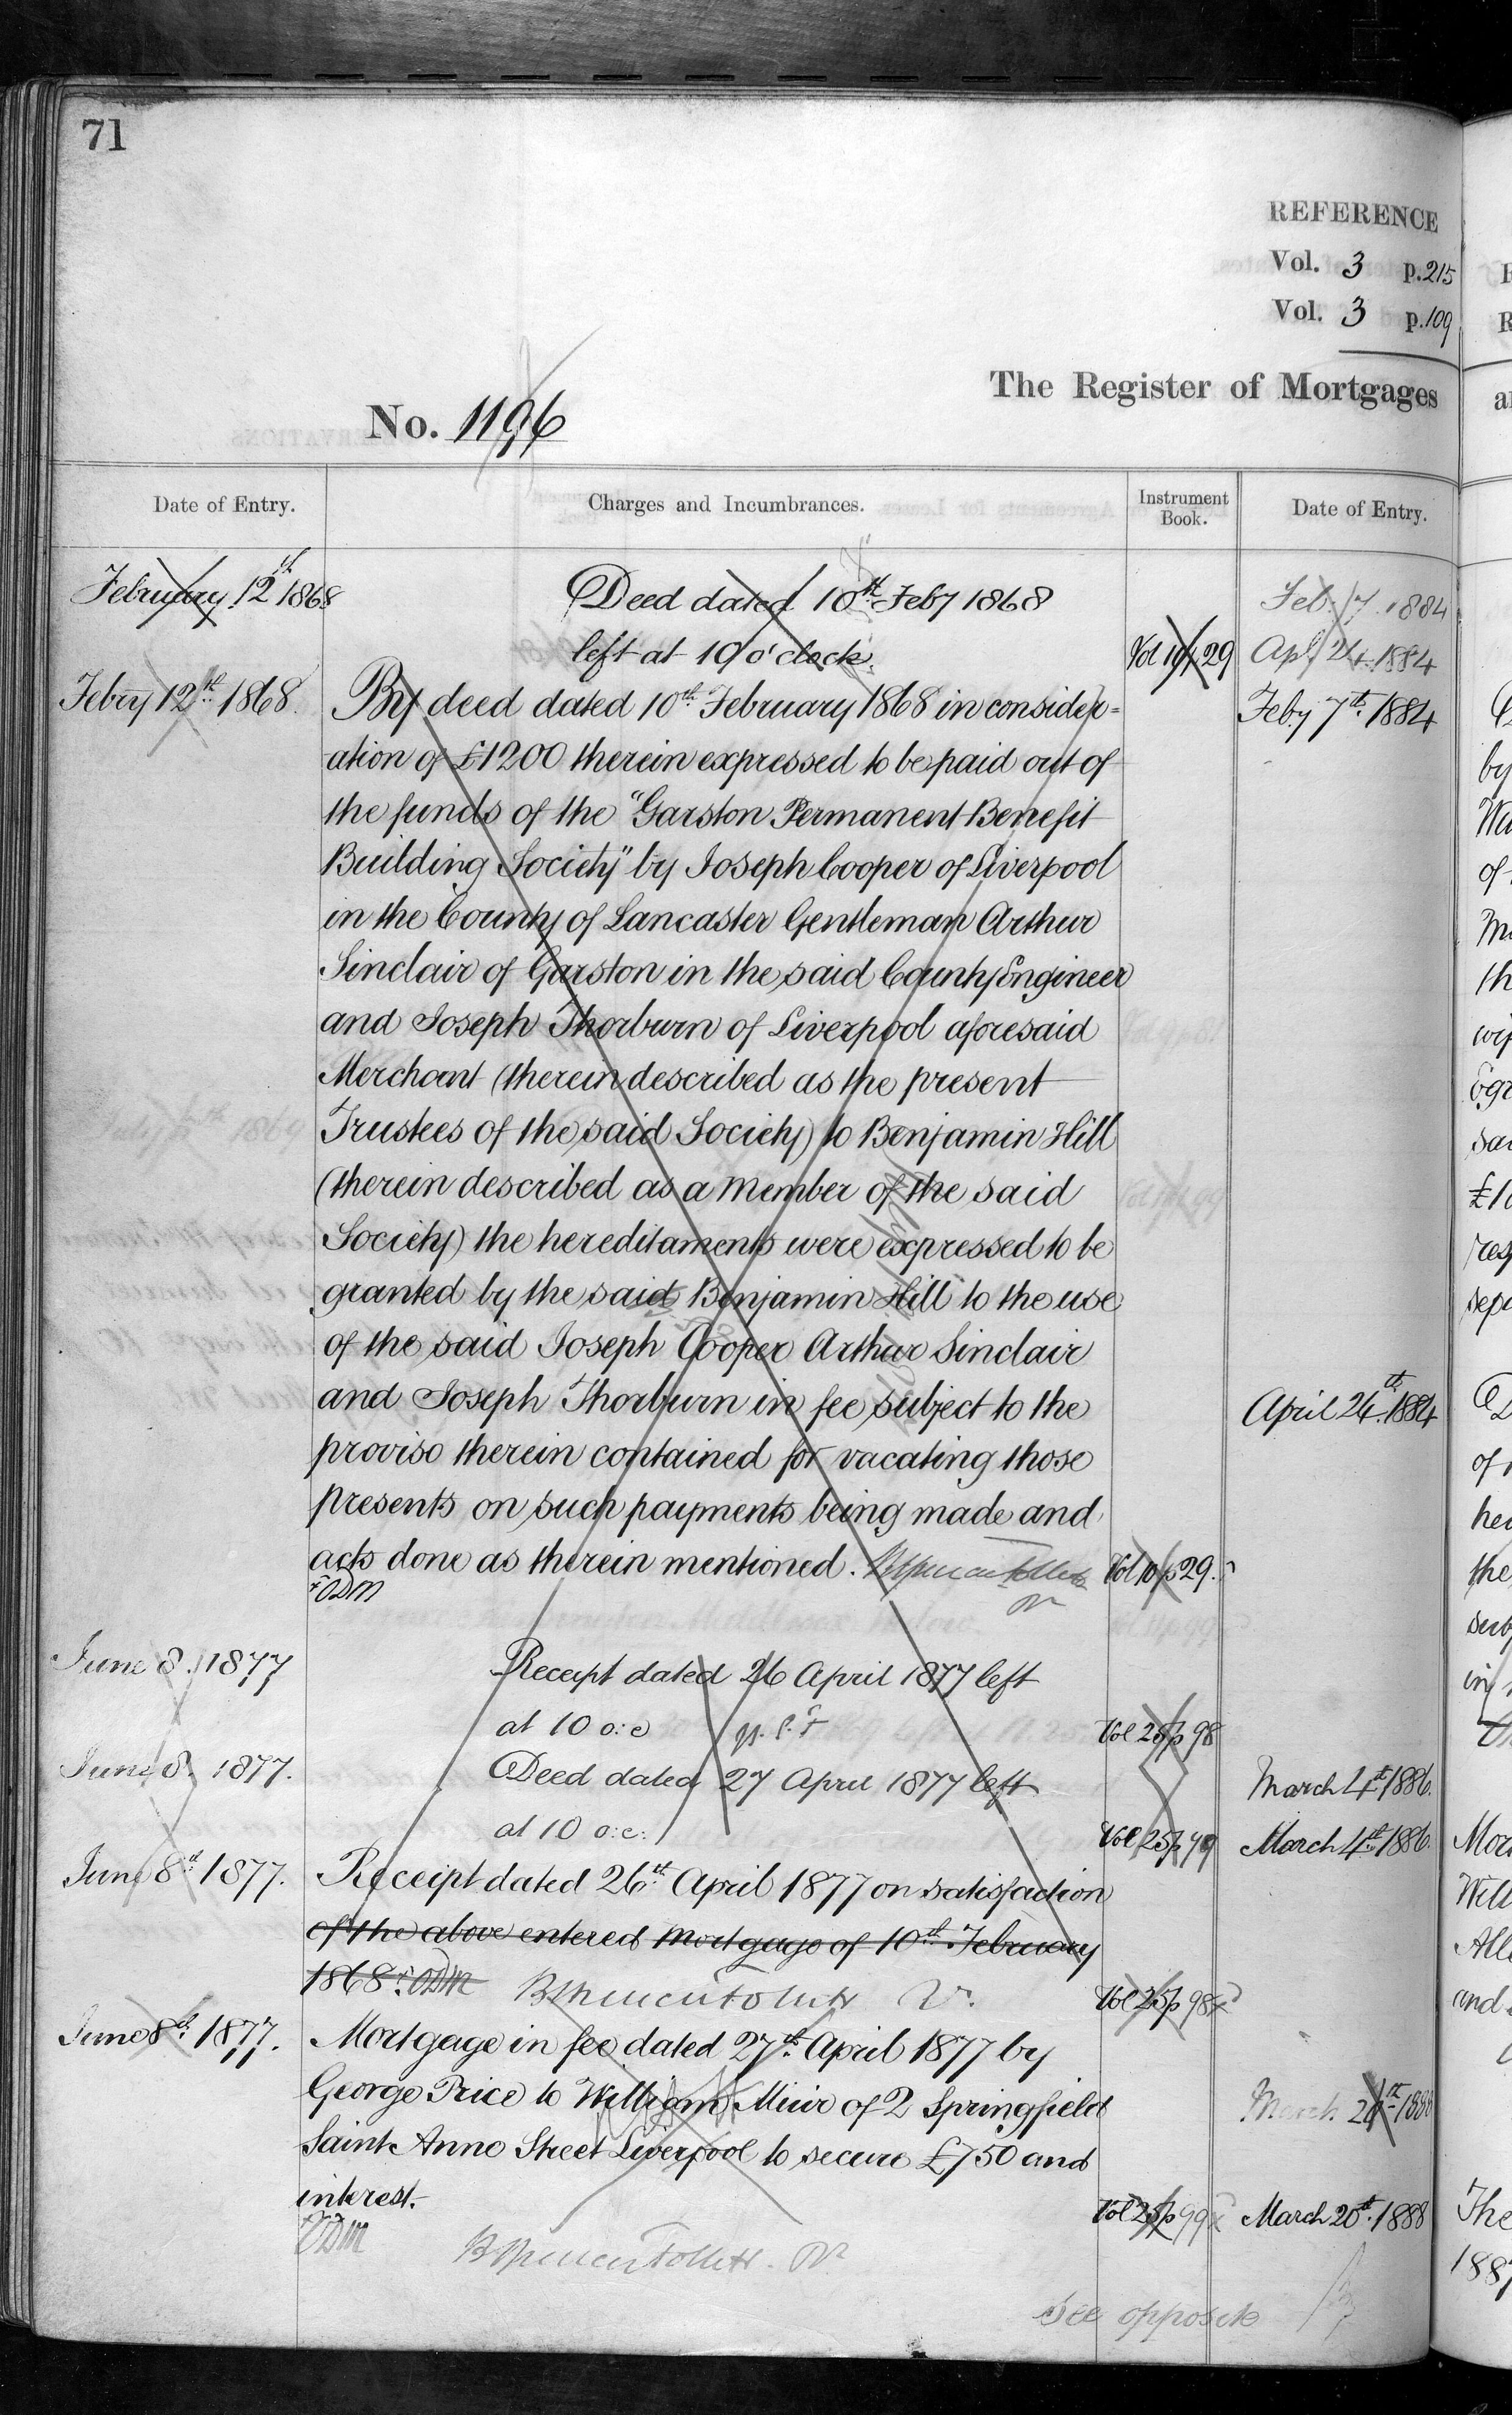 71
REFERENCE
Vol. 3 p. 215
Vol. 3 p. 109
The Register of Mortgages
No. 1196
Date of Entry. Charges and Incumbrances. Instrument Book. Date of Entry.
February 12th 1868 Deed dated 10th Feby 1868 Feb. 7. 1884
left at 10 o'clock. Vol 10 p 29 Apl 24. 1884
Febry 12th 1868. By deed dated 10th February 1868 in consider= Feby 7th 1884
ation of £1200 therein expressed to be paid out of
the funds of the "Garston Permanent Benefit
Building Society" by Joseph Cooper of Liverpool
in the County of Lancaster Gentleman Arthur
Sinclair of Garston in the said County Engineer
and Joseph Thorburn of Liverpool aforesaid
Merchant (therein described as the present
Trustees of the said Society) to Benjamin Hill
(therein described as a member of the said
Society) the hereditaments were expressed to be
granted by the said Benjamin Hill to the use
of the said Joseph Cooper Arthur Sinclair
and Joseph Thorburn in fee subject to the April 24th 1884
proviso therein contained for vacating those
presents on such payments being made and
acts done as therein mentioned. Vol 10 p 29.
ODM
June 8. 1877 Receipt dated 26 April 1877 left
at 10 o:c Vol 25 p 98
June 8. 1877. Deed dated 27 April 1877 left March 4th 1886.
at 10 o:c: Vol 25 p 99 March 4th 1886.
June 8th 1877. Receipt dated 26th April 1877 on satisfaction
of the above entered mortgage of 10th February
1868. ODM Vol 25 p 98
June 8th 1877. Mortgage in fee dated 27th April 1877 by
George Price to William Muir of 2 Springfield March 20th 1888
Saint Anne Street Liverpool to secure £750 and
interest. Vol 25 p 99 March 20th 1888
ODM
See opposite